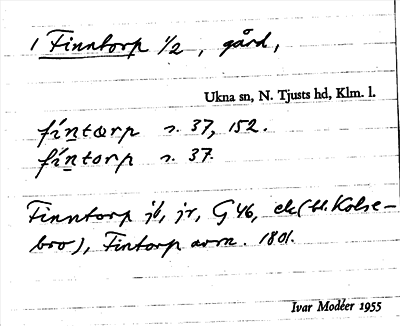 1 Finntorp 1/2, gård,
Ukna sn, N. Tjusts hd, Klm. l.
fíntærp s. 37, 152.
fíntorp s. 37.
Finntorp jb, jr, G 46, ek (bl. Kolse-
bro), Fintorp avm. 1801.
Ivar Modéer 1955